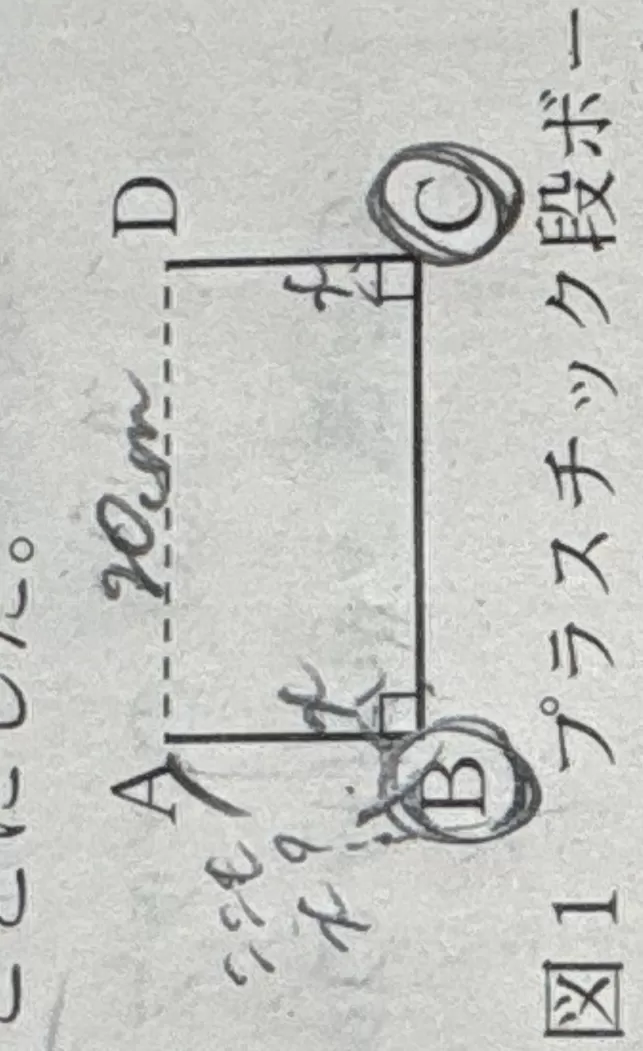 ことにした。
A D
20cm
x x
B C
図1 プラスチック段ボー